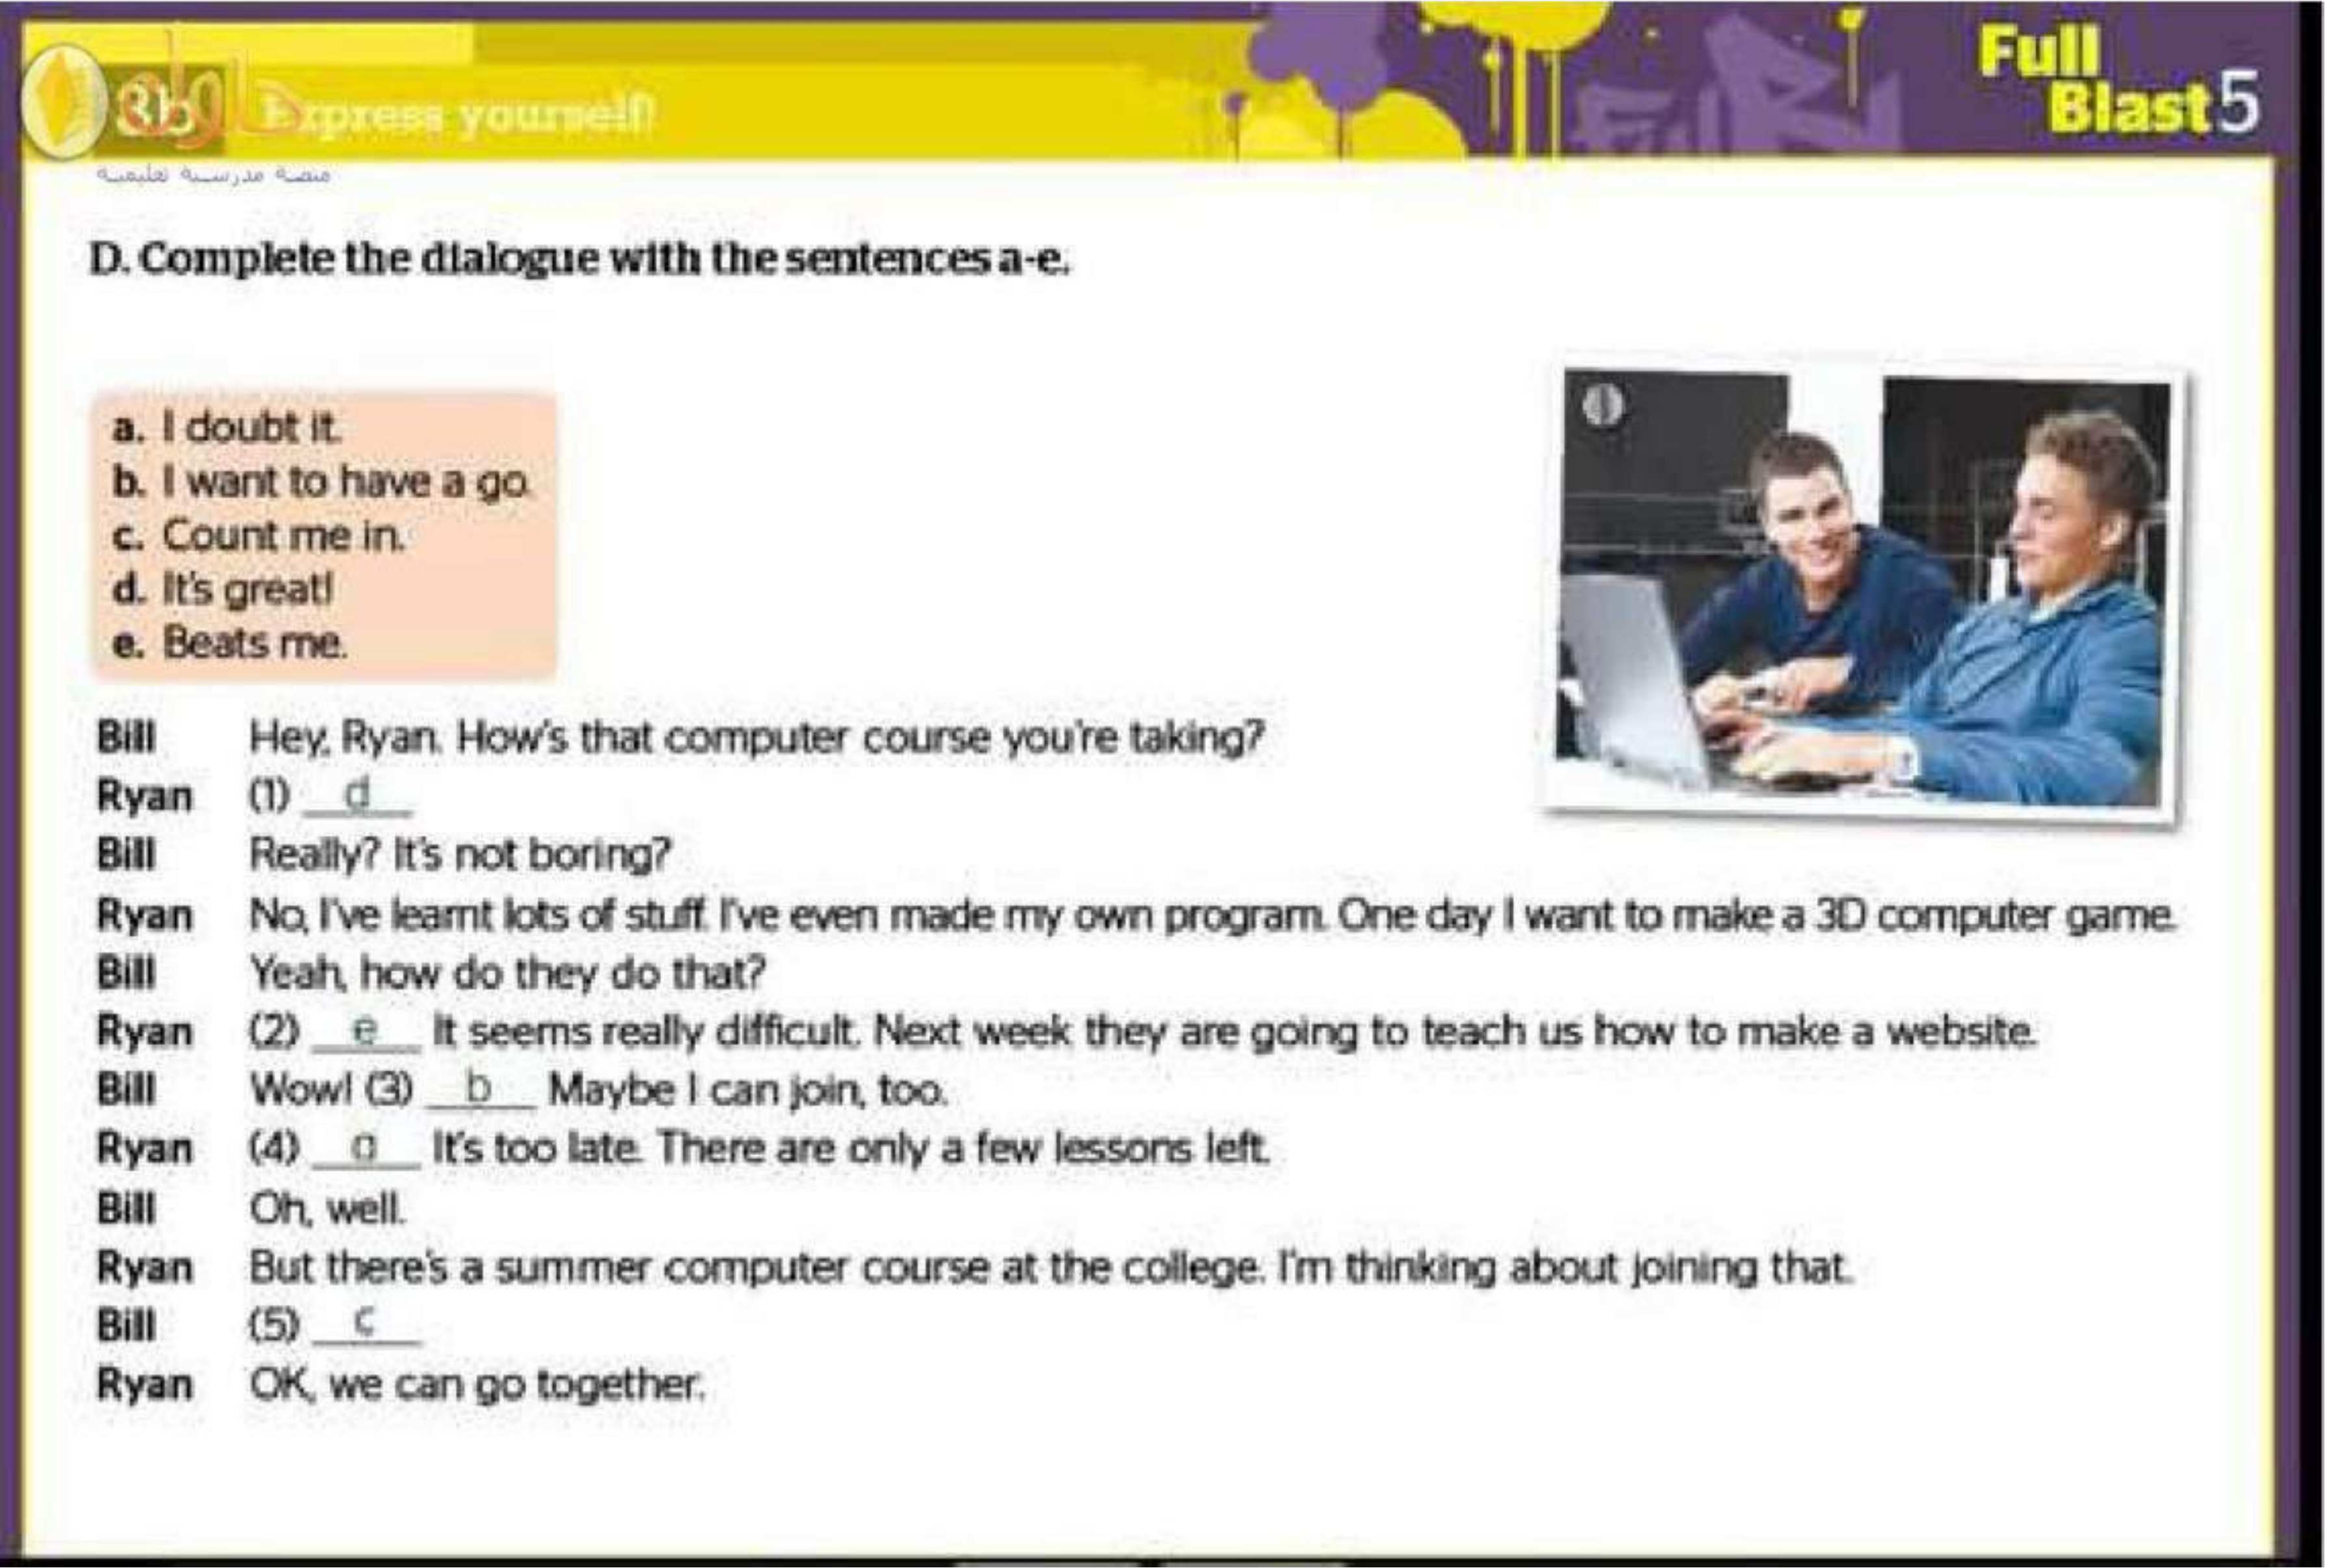 Full
Blast 5
3b Express yourself!
حلول
منصة مدرسية تعليمية
D. Complete the dialogue with the sentences a-e.
a. I doubt it.
b. I want to have a go.
c. Count me in.
d. It's great!
e. Beats me.
Bill Hey, Ryan. How's that computer course you're taking?
Ryan (1) d
Bill Really? It's not boring?
Ryan No, I've learnt lots of stuff. I've even made my own program. One day I want to make a 3D computer game.
Bill Yeah, how do they do that?
Ryan (2) e It seems really difficult. Next week they are going to teach us how to make a website.
Bill Wow! (3) b Maybe I can join, too.
Ryan (4) a It's too late. There are only a few lessons left.
Bill Oh, well.
Ryan But there's a summer computer course at the college. I'm thinking about joining that.
Bill (5) c
Ryan OK, we can go together.